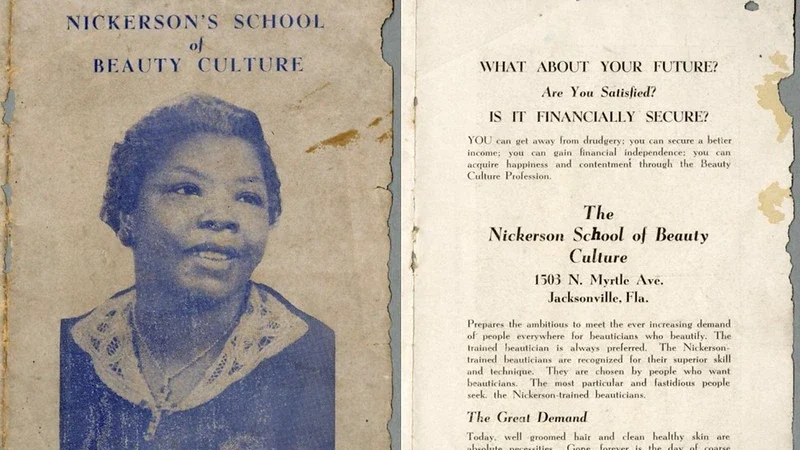 NICKERSON'S SCHOOL
of
BEAUTY CULTURE
WHAT ABOUT YOUR FUTURE?
Are You Satisfied?
IS IT FINANCIALLY SECURE?
YOU can get away from drudgery; you can secure a better
income; you can gain financial independence; you can
acquire happiness and contentment through the Beauty
Culture Profession.
The
Nickerson School of Beauty
Culture
1503 N. Myrtle Ave.
Jacksonville, Fla.
Prepares the ambitious to meet the ever increasing demand
of people everywhere for beauticians who beautify. The
trained beautician is always preferred. The Nickerson-
trained beauticians are recognized for their superior skill
and technique. They are chosen by people who want
beauticians. The most particular and fastidious people
seek. the Nickerson-trained beauticians.
The Great Demand
Today, well groomed hair and clean healthy skin are
absolute necessities. Gone, forever is the day of coarse